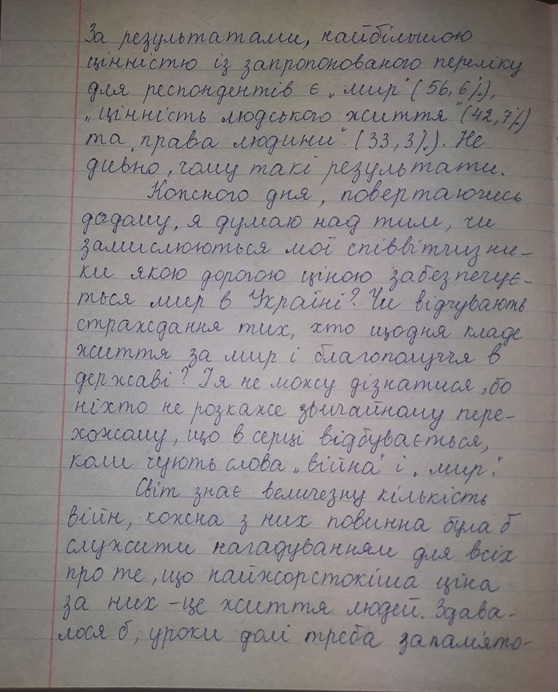 За результатами, найбільшою
цінністю із запропонованого переліку
для респондентів є „мир" (56,6%),
„цінність людського життя" (42,7%)
та „права людини" (33,3%). Не
дивно, чому такі результати.
Кожного дня, повертаючись
додому, я думаю над тим, чи
замислюються мої співвітчизни-
ки якою дорогою ціною забезпечує-
ться мир в Україні? Чи відчувають
страждання тих, хто щодня кладе
життя за мир і благополуччя в
державі? І я не можу дізнатися, бо
ніхто не розкаже звичайному пере-
хожому, що в серці відбувається,
коли чують слова „війна" і „мир".
Світ знає величезну кількість
війн, кожна з них повинна була б
служити нагадуванням для всіх
про те, що найжорстокіша ціна
за них - це життя людей. Здава-
лося б, уроки долі треба запам'ято-